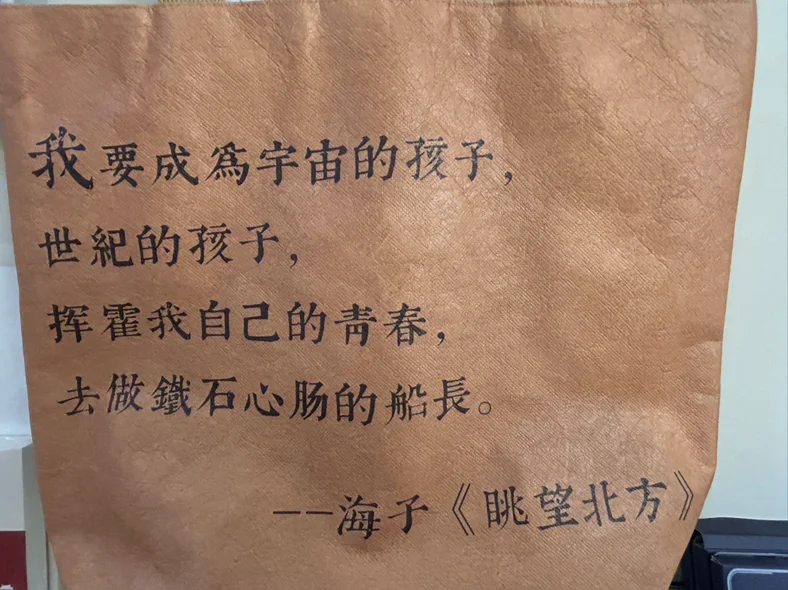 我要成爲宇宙的孩子，
世紀的孩子，
挥霍我自己的青春，
去做鐵石心肠的船長。
--海子《眺望北方》